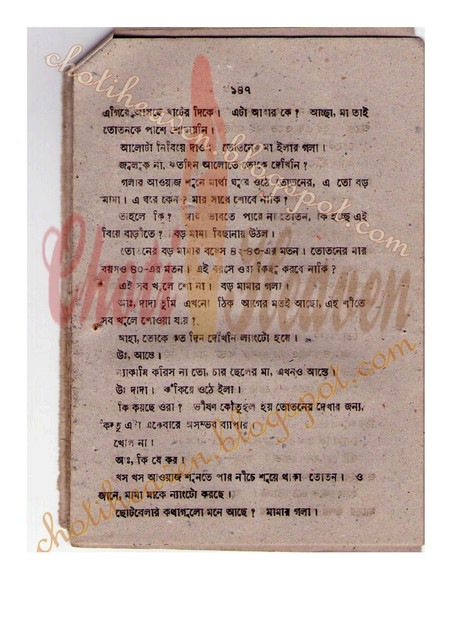 ১৪৭
এগিয়ে আসছে খাটের দিকে। এটা আবার কে? আচ্ছা, মা তাই
তোতনকে পাশে শোয়ায়নি।
আলোটা নিবিয়ে দাও। তোতনের মা ইলার গলা।
জ্বলুক না, কতদিন আলোতে তোকে দেখিনি?
গলার আওয়াজ শুনে মাথা ঘুরে ওঠে তোতনের, এ তো বড়
মামা। এ ঘরে কেন? মার সাথে শোবে নাকি?
তাহলে কি? আর ভাবতে পারে না তোতন, কি হচ্ছে এই
বিয়ে বাড়ীতে? বড় মামা বিছানায় উঠল।
তোতনের বড় মামার বয়েস ৪২-৪৩-এর মতন। তোতনের মার
বয়সও ৪০-এর মতন। এই বয়সে ওরা কিছু করবে নাকি?
এই সব খুলে শো না। বড় মামার গলা।
আঃ, দাদা তুমি এখনো ঠিক আগের মতই আছো, এই শীতে
সব খুলে শোওয়া যায়?
আহা, তোকে কত দিন দেখিনি ল্যাংটো হয়ে।
উঃ, আস্তে।
ন্যাকামি করিস না তো, চার ছেলের মা, এখনও আস্তে
উঃ দাদা। কঁকিয়ে ওঠে ইলা।
কি করছে ওরা? ভীষণ কৌতুহল হয় তোতনের দেখার জন্য,
কিন্তু এটা একেবারে অসম্ভব ব্যাপার।
খোল না।
আঃ, কি যে কর।
খস খস আওয়াজ শুনতে পায় নীচে শুয়ে থাকা তোতন। ও
জানে, মামা মাকে ন্যাংটো করছে।
ছোটবেলার কথাগুলো মনে আছে? মামার গলা।
Choti Heaven
chotiheaven.blogspot.com
chotiheaven.blogspot.com